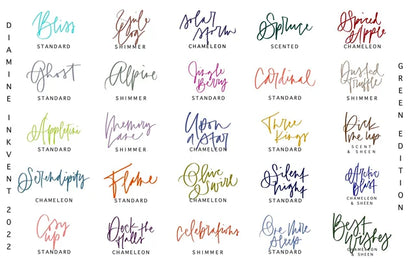 DIAMINE INKVENT 2022
Bliss
STANDARD
Yule Log
SHIMMER
Solar Storm
CHAMELEON
Spruce
SCENTED
Spiced Apple
CHAMELEON
Ghost
STANDARD
Alpine
SHIMMER
Jingle Berry
STANDARD
Cardinal
STANDARD
Dusted Truffle
SHIMMER
Appletini
STANDARD
Memory Lane
SHIMMER
Upon a Star
CHAMELEON
Three Kings
STANDARD
Pick me up
SCENT & SHEEN
Serendipity
CHAMELEON
Flame
STANDARD
Olive Swirl
CHAMELEON
Silent Night
STANDARD
Arctic Blast
CHAMELEON & SHEEN
Cosy up
STANDARD
Deck the Halls
CHAMELEON
Celebrations
SHIMMER
One More Sleep
STANDARD
Best Wishes
CHAMELEON & SHEEN
GREEN EDITION